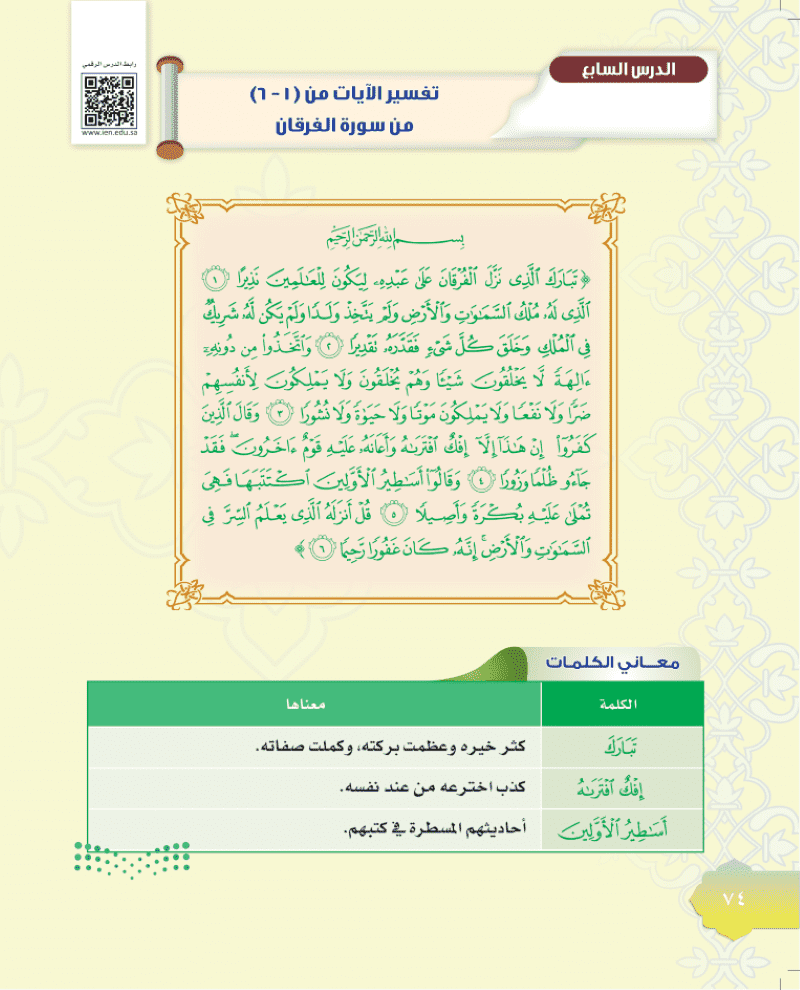 رابط الدرس الرقمي
www.ien.edu.sa
الدرس السابع
تفسير الآيات من (١ - ٦)
من سورة الفرقان
بِسْمِ اللَّهِ الرَّحْمَٰنِ الرَّحِيمِ
﴿ تَبَارَكَ ٱلَّذِى نَزَّلَ ٱلْفُرْقَانَ عَلَىٰ عَبْدِهِۦ لِيَكُونَ لِلْعَٰلَمِينَ نَذِيرًا ١
ٱلَّذِى لَهُۥ مُلْكُ ٱلسَّمَٰوَٰتِ وَٱلْأَرْضِ وَلَمْ يَتَّخِذْ وَلَدًا وَلَمْ يَكُن لَّهُۥ شَرِيكٌ
فِى ٱلْمُلْكِ وَخَلَقَ كُلَّ شَىْءٍ فَقَدَّرَهُۥ تَقْدِيرًا ٢ وَٱتَّخَذُوا۟ مِن دُونِهِۦٓ
ءَالِهَةً لَّا يَخْلُقُونَ شَيْـًٔا وَهُمْ يُخْلَقُونَ وَلَا يَمْلِكُونَ لِأَنفُسِهِمْ
ضَرًّا وَلَا نَفْعًا وَلَا يَمْلِكُونَ مَوْتًا وَلَا حَيَوٰةً وَلَا نُشُورًا ٣ وَقَالَ ٱلَّذِينَ
كَفَرُوٓا۟ إِنْ هَٰذَآ إِلَّآ إِفْكٌ ٱفْتَرَىٰهُ وَأَعَانَهُۥ عَلَيْهِ قَوْمٌ ءَاخَرُونَ ۖ فَقَدْ
جَآءُو ظُلْمًا وَزُورًا ٤ وَقَالُوٓا۟ أَسَٰطِيرُ ٱلْأَوَّلِينَ ٱكْتَتَبَهَا فَهِىَ
تُمْلَىٰ عَلَيْهِ بُكْرَةً وَأَصِيلًا ٥ قُلْ أَنزَلَهُ ٱلَّذِى يَعْلَمُ ٱلسِّرَّ فِى
ٱلسَّمَٰوَٰتِ وَٱلْأَرْضِ ۚ إِنَّهُۥ كَانَ غَفُورًا رَّحِيمًا ٦ ﴾
معـــاني الكلمات
الكلمة معناها
تَبَارَكَ كثر خيره وعظمت بركته، وكملت صفاته.
إِفْكٌ ٱفْتَرَىٰهُ كذب اخترعه من عند نفسه.
أَسَٰطِيرُ ٱلْأَوَّلِينَ أحاديثهم المسطرة في كتبهم.
٧٤